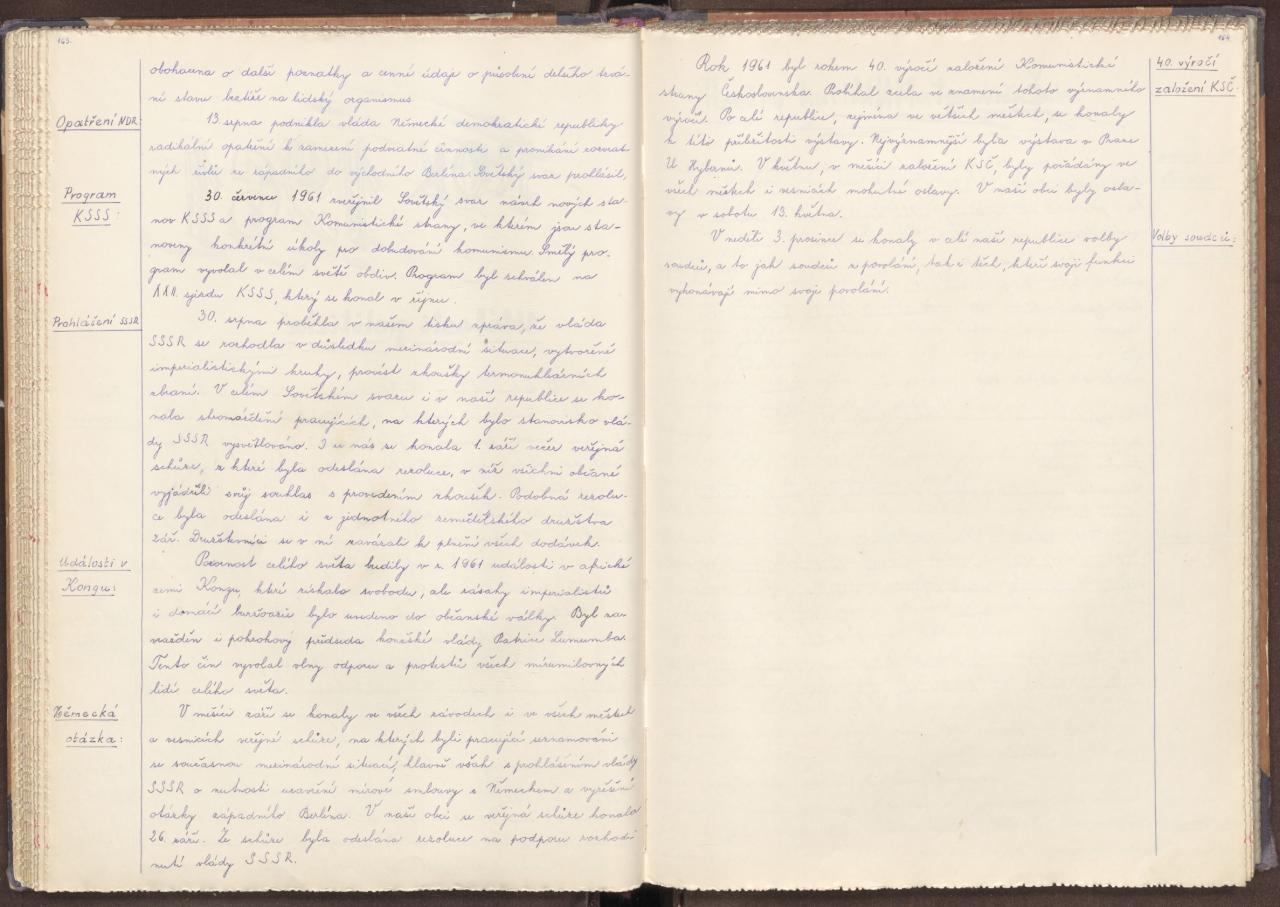 163.
obohacena o další poznatky a cenné údaje o působení delšího trvá-
ní stavu beztíže na lidský organismus.
Opatření NDR:
13. srpna podnikla vláda Německé demokratické republicky
radikální opatření k zamezení podvratné činnosti a pronikání rozvrat-
ných živlů ze západního do východního Berlína. Sovětský svaz prohlásil,
Program
KSSS:
30. července 1961 zveřejnil Sovětský svaz návrh nových sta-
nov KSSS a program Komunistické strany, ve kterém jsou sta-
noveny konkrétní úkoly pro dobudování komunismu. Smělý pro-
gram vyvolal v celém světě obdiv. Program byl schválen na
XXII. sjezdu KSSS, který se konal v říjnu.
Prohlášení SSSR
30. srpna proběhla v našem tisku zpráva, že vláda
SSSR se rozhodla v důsledku mezinárodní situace, vytvořené
imperialistickými kruhy, provést zkoušky termonukleárních
zbraní. V celém Sovětském svazu i v naší republice se ko-
nala shromáždění pracujících, na kterých bylo stanovisko vlá-
dy SSSR vysvětlováno. I u nás se konala 1. září večer veřejná
schůze, z které byla odeslána rezoluce, v níž všichni občané
vyjádřili svůj souhlas s provedením zkoušek. Podobná rezolu-
ce byla odeslána i z jednotného zemědělského družstva
září. Družstevníci se v ní zavázali k plnění všech dodávek.
Události v
Kongu:
Pozornost celého světa budily v r. 1961 události v africké
zemi Kongu, které získalo svobodu, ale zásahy imperialistů
i domácí buržoazie bylo uvedeno do občanské války. Byl za-
vražděn i pokrokový předseda konžské vlády Patrice Lumumba.
Tento čin vyvolal vlny odporu a protestů všech mírumilovných
lidí celého světa.
Německá
otázka:
V měsíci září se konaly ve všech závodech i ve všech městech
a vesnicích veřejné schůze, na kterých byli pracující seznamováni
se současnou mezinárodní situací, hlavně však s prohlášením vlády
SSSR o nutnosti uzavření mírové smlouvy s Německem a vyřešení
otázky západního Berlína. V naší obci se veřejná schůze konala
26. září. Ze schůze byla odeslána rezoluce na podporu rozhod-
nutí vlády SSSR.
164
40. výročí
založení KSČ.
Rok 1961 byl rokem 40. výročí založení Komunistické
strany Československa. Probíhal zcela ve znamení tohoto významného
výročí. Po celé republice, zejména ve větších městech, se konaly
k této příležitosti výstavy. Nejvýznamnější byla výstava v Praze
U Hybernů. V květnu, v měsíci založení KSČ, byly pořádány ve
všech městech i vesnicích mohutné oslavy. V naší obci byly osla-
vy v sobotu 13. května.
Volby soudců:
V neděli 3. prosince se konaly v celé naší republice volby
soudců, a to jak soudců z povolání, tak i těch, kteří svoji funkci
vykonávají mimo svoje povolání.